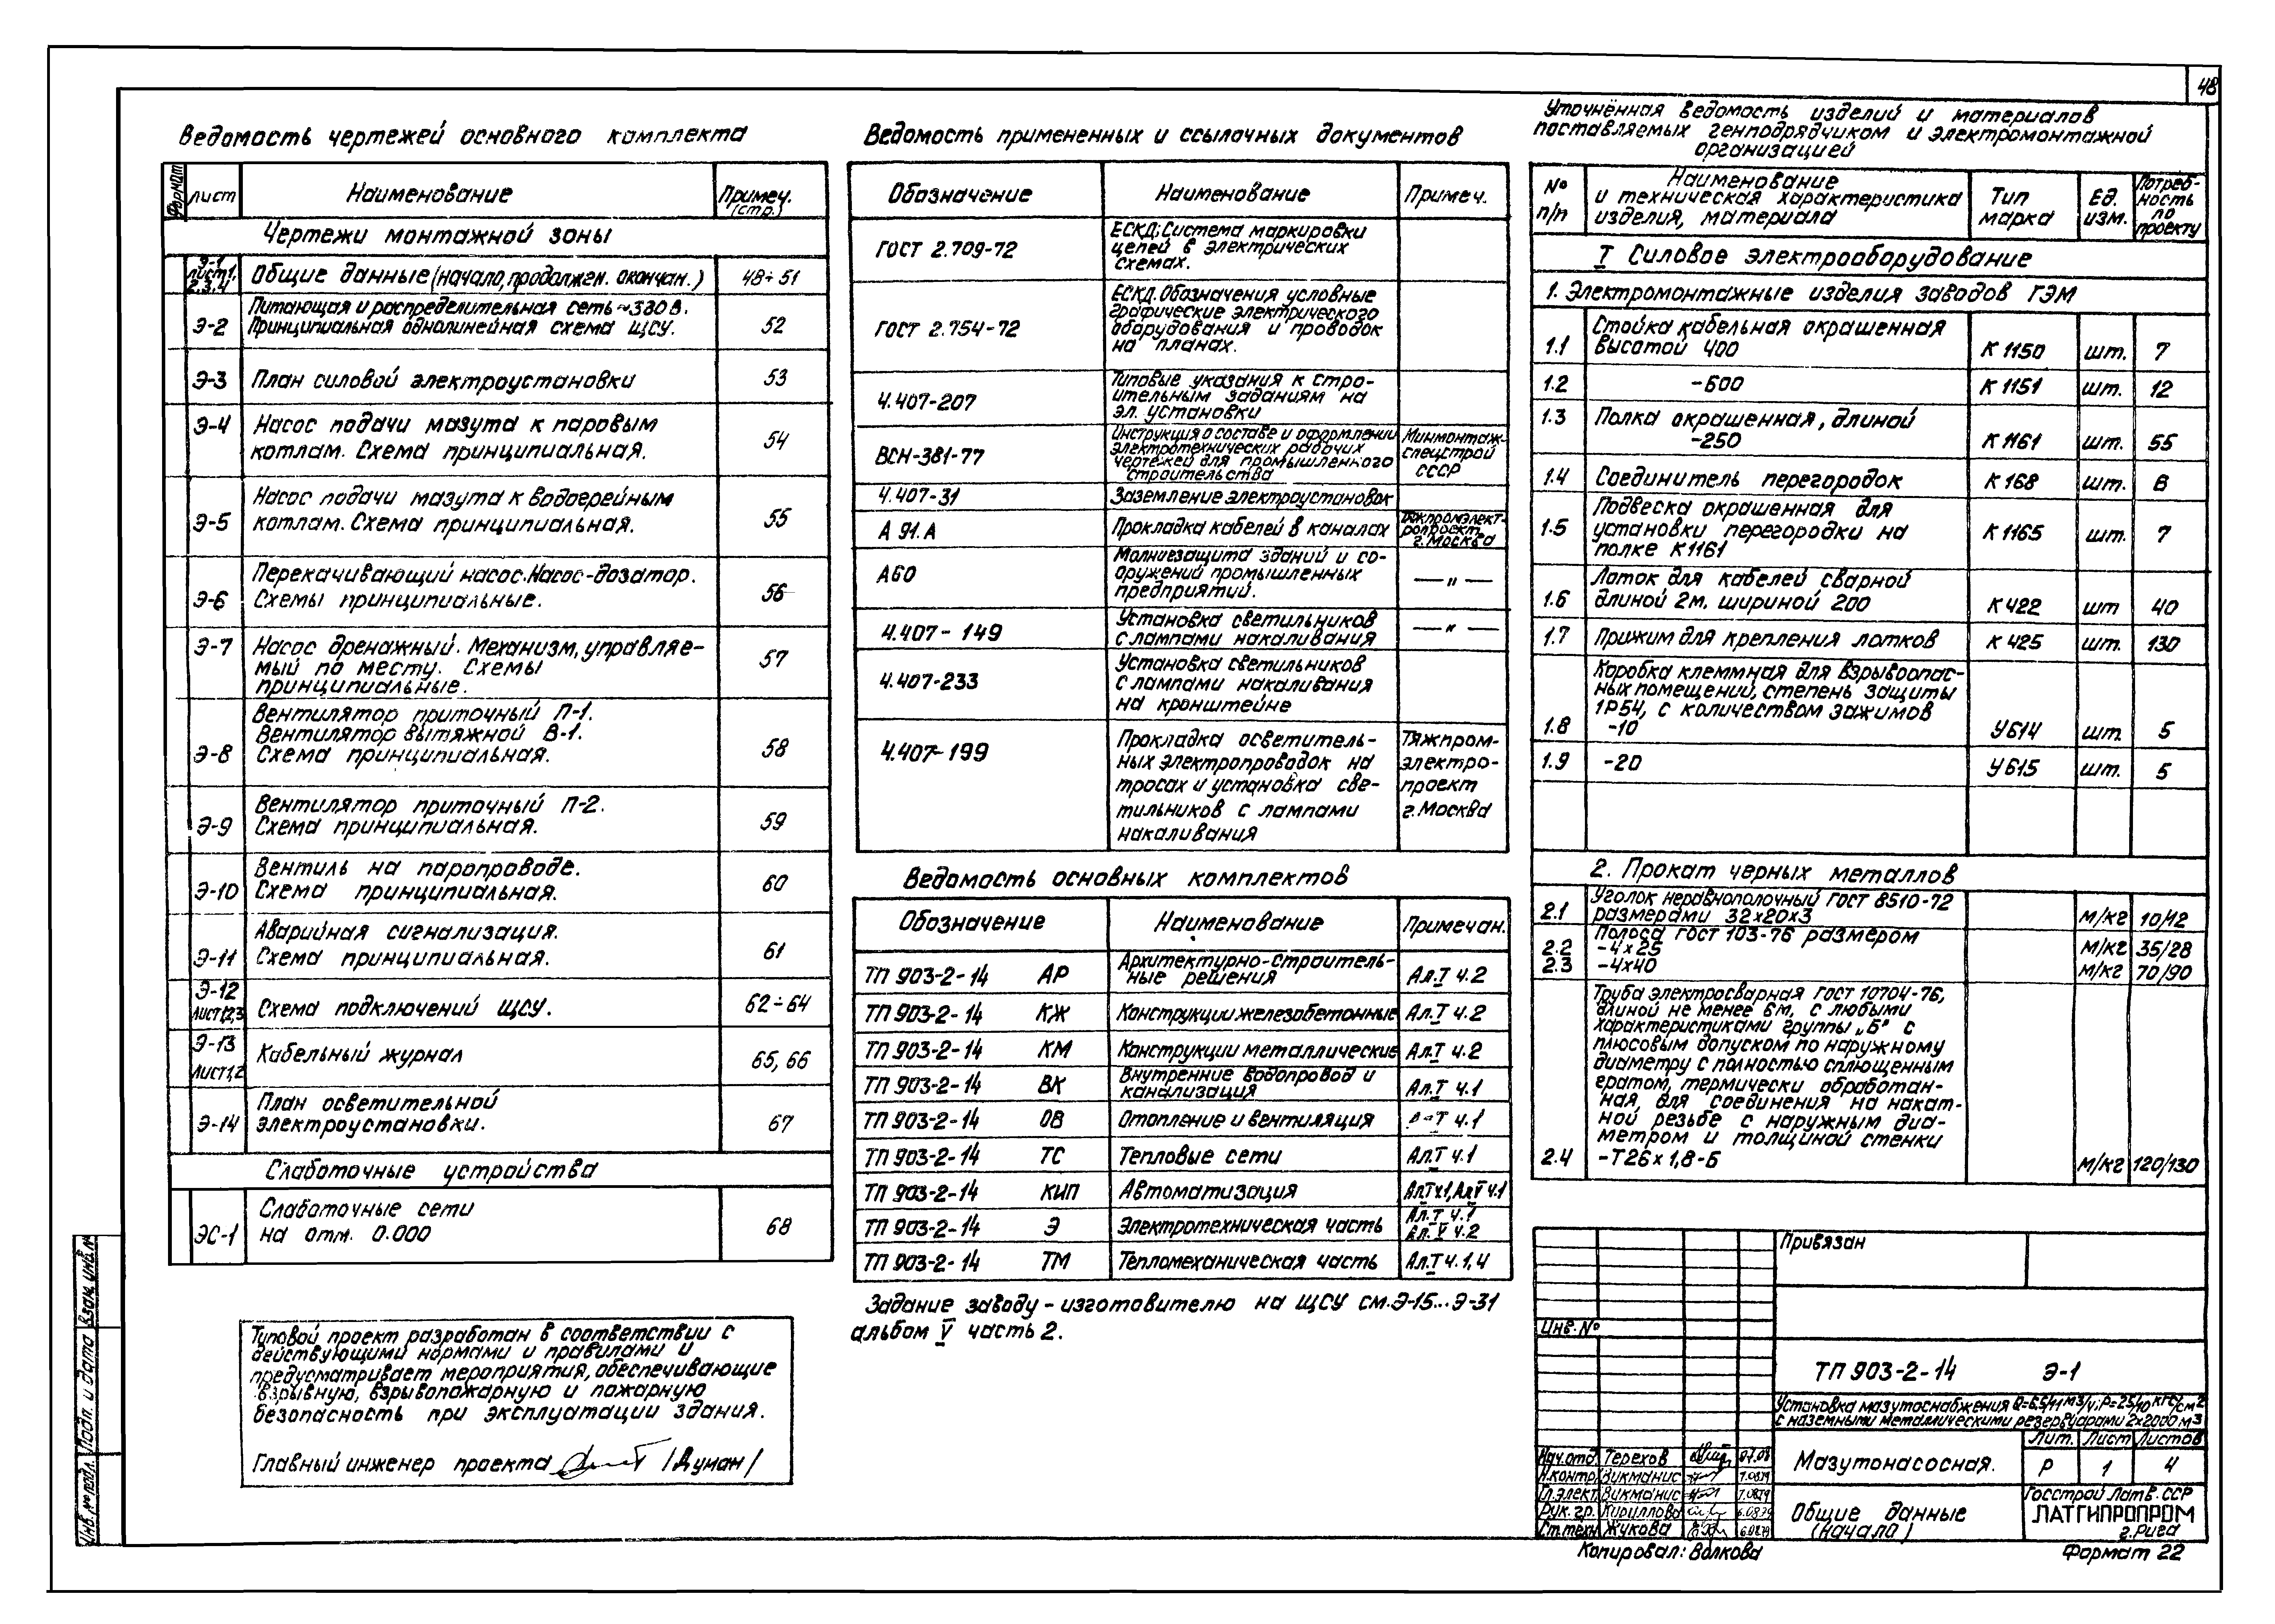 48
Ведомость чертежей основного комплекта
Формат
Лист
Наименование
Примеч.
(стр.)
Чертежи монтажной зоны
Э-1
лист 1,
2,3,4
Общие данные (начало, продолжен. окончан.)
48÷51
Питающая и распределительная сеть ~380 В.
Э-2
Принципиальная однолинейная схема ЩСУ.
52
Э-3
План силовой электроустановки
53
Э-4
Насос подачи мазута к паровым
котлам. Схема принципиальная.
54
Насос подачи мазута к водогрейным
Э-5
котлам. Схема принципиальная.
55
Перекачивающий насос. Насос-дозатор.
Э-6
Схемы принципиальные.
56
Э-7
Насос дренажный. Механизм, управляе-
мый по месту. Схемы
принципиальные.
57
Вентилятор приточный П-1.
Вентилятор вытяжной В-1.
Э-8
Схема принципиальная.
58
Вентилятор приточный П-2.
Э-9
Схема принципиальная.
59
Вентиль на паропроводе.
Э-10
Схема принципиальная.
60
Аварийная сигнализация.
Э-11
Схема принципиальная.
61
Э-12
лист 1,2,3
Схема подключений ЩСУ.
62÷64
Э-13
Лист 1,2
Кабельный журнал
65, 66
План осветительной
Э-14
электроустановки.
67
Слаботочные устройства
Слаботочные сети
ЭС-1
на отм. 0.000
68
Типовой проект разработан в соответствии с
действующими нормами и правилами и
предусматривает мероприятия, обеспечивающие
взрывную, взрывопожарную и пожарную
безопасность при эксплуатации здания.
Главный инженер проекта /Думан/
Ведомость примененных и ссылочных документов
Обозначение
Наименование
Примеч.
ГОСТ 2.709-72
ЕСКД; Система маркировки
цепей в электрических
схемах.
ГОСТ 2.754-72
ЕСКД. Обозначения условные
графические электрического
оборудования и проводок
на планах.
4.407-207
Типовые указания к стро-
ительным заданиям на
эл. установки
ВСН-381-77
Инструкция о составе и оформлении
электротехнических рабочих
чертежей для промышленного
строительства
Минмонтаж-
спецстрой
СССР
4.407-31
Заземление электроустановок
А 91.А
Прокладка кабелей в каналах
Тяжпромэлект-
ропроект
г. Москва
А60
Молниезащита зданий и со-
оружений промышленных
предприятий.
— " —
4.407-149
Установка светильников
с лампами накаливания
— " —
4.407-233
Установка светильников
с лампами накаливания
на кронштейне
4.407-199
Прокладка осветитель-
ных электропроводок на
тросах и установка све-
тильников с лампами
накаливания
Тяжпром-
электро-
проект
г. Москва
Ведомость основных комплектов
Обозначение
Наименование
Примечан.
ТП 903-2-14 АР
Архитектурно-строитель-
ные решения
Ал.I ч.2
ТП 903-2-14 КЖ
Конструкции железобетонные
Ал.I ч.2
ТП 903-2-14 КМ
Конструкции металлические
Ал.I ч.2
ТП 903-2-14 ВК
Внутренние водопровод и
канализация
Ал.I ч.1
ТП 903-2-14 ОВ
Отопление и вентиляция
ч.1
ТП 903-2-14 ТС
Тепловые сети
Ал.I ч.1
ТП 903-2-14 КИП
Автоматизация
Ал.I ч.1, Ал.V ч.1
ТП 903-2-14 Э
Электротехническая часть
Ал.I ч.1
Ал.V ч.2
ТП 903-2-14 ТМ
Тепломеханическая часть
Ал.I ч.1,4
Задание заводу-изготовителю на ЩСУ см. Э-15...Э-31
альбом V часть 2.
Уточнённая ведомость изделий и материалов
поставляемых генподрядчиком и электромонтажной
организацией
№
п/п
Наименование
и техническая характеристика
изделия, материала
Тип
марка
Ед.
изм.
Потреб-
ность
по
проекту
I Силовое электрооборудование
1. Электромонтажные изделия заводов ГЭМ
Стойка кабельная окрашенная
1.1 высотой 400 К 1150 шт. 7
1.2 -600 К 1151 шт. 12
1.3 Полка окрашенная, длиной
-250 К 1161 шт. 55
1.4 Соединитель перегородок К 168 шт. 8
Подвеска окрашенная для
1.5 установки перегородки на К 1165 шт. 7
полке К1161
Лоток для кабелей сварной
1.6 длиной 2м, шириной 200 К 422 шт 40
1.7 Прижим для крепления лотков К 425 шт. 130
Коробка клеммная для взрывоопас-
ных помещений, степень защиты
1Р54, с количеством зажимов
1.8 -10 У614 шт. 5
1.9 -20 У615 шт. 5
2. Прокат черных металлов
Уголок неравнополочный ГОСТ 8510-72
2.1 размерами 32×20×3 м/кг 10/12
Полоса ГОСТ 103-76 размером
2.2 -4×25 м/кг 35/28
2.3 -4×40 м/кг 70/90
Труба электросварная ГОСТ 10704-76,
длиной не менее 6м, с любыми
характеристиками группы „Б" с
плюсовым допуском по наружному
диаметру с полностью сплющенным
гратом, термически обработан-
ная, для соединения на накат-
ной резьбе с наружным диа-
метром и толщиной стенки
2.4 -Т26×1,8-Б м/кг 120/130
Привязан
Инв. №
ТП 903-2-14 Э-1
Установка мазутоснабжения Q=6,5/11 м3/ч; Р=25/10 кгс/см2
с наземными металлическими резервуарами 2×2000 м3
Мазутонасосная.
Лит. Лист Листов
Р 1 4
Общие данные
(начало)
Госстрой Латв. ССР
ЛАТГИПРОПРОМ
г. Рига
Нач. отд. Терехов 07.08
Н.контр. Викманис 7.0879
Гл.элект. Викманис 7.0879
Рук. гр. Кириллова 6.0879
Ст.техн. Жукова 6.0879
Копировал: Волкова
Формат 22
Взам. инв. №
Подп. и дата
Инв. № подл.